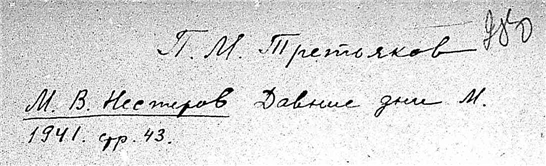 П. М. Третьяков
М. В. Нестеров Давние дни М.
1941. стр. 43.